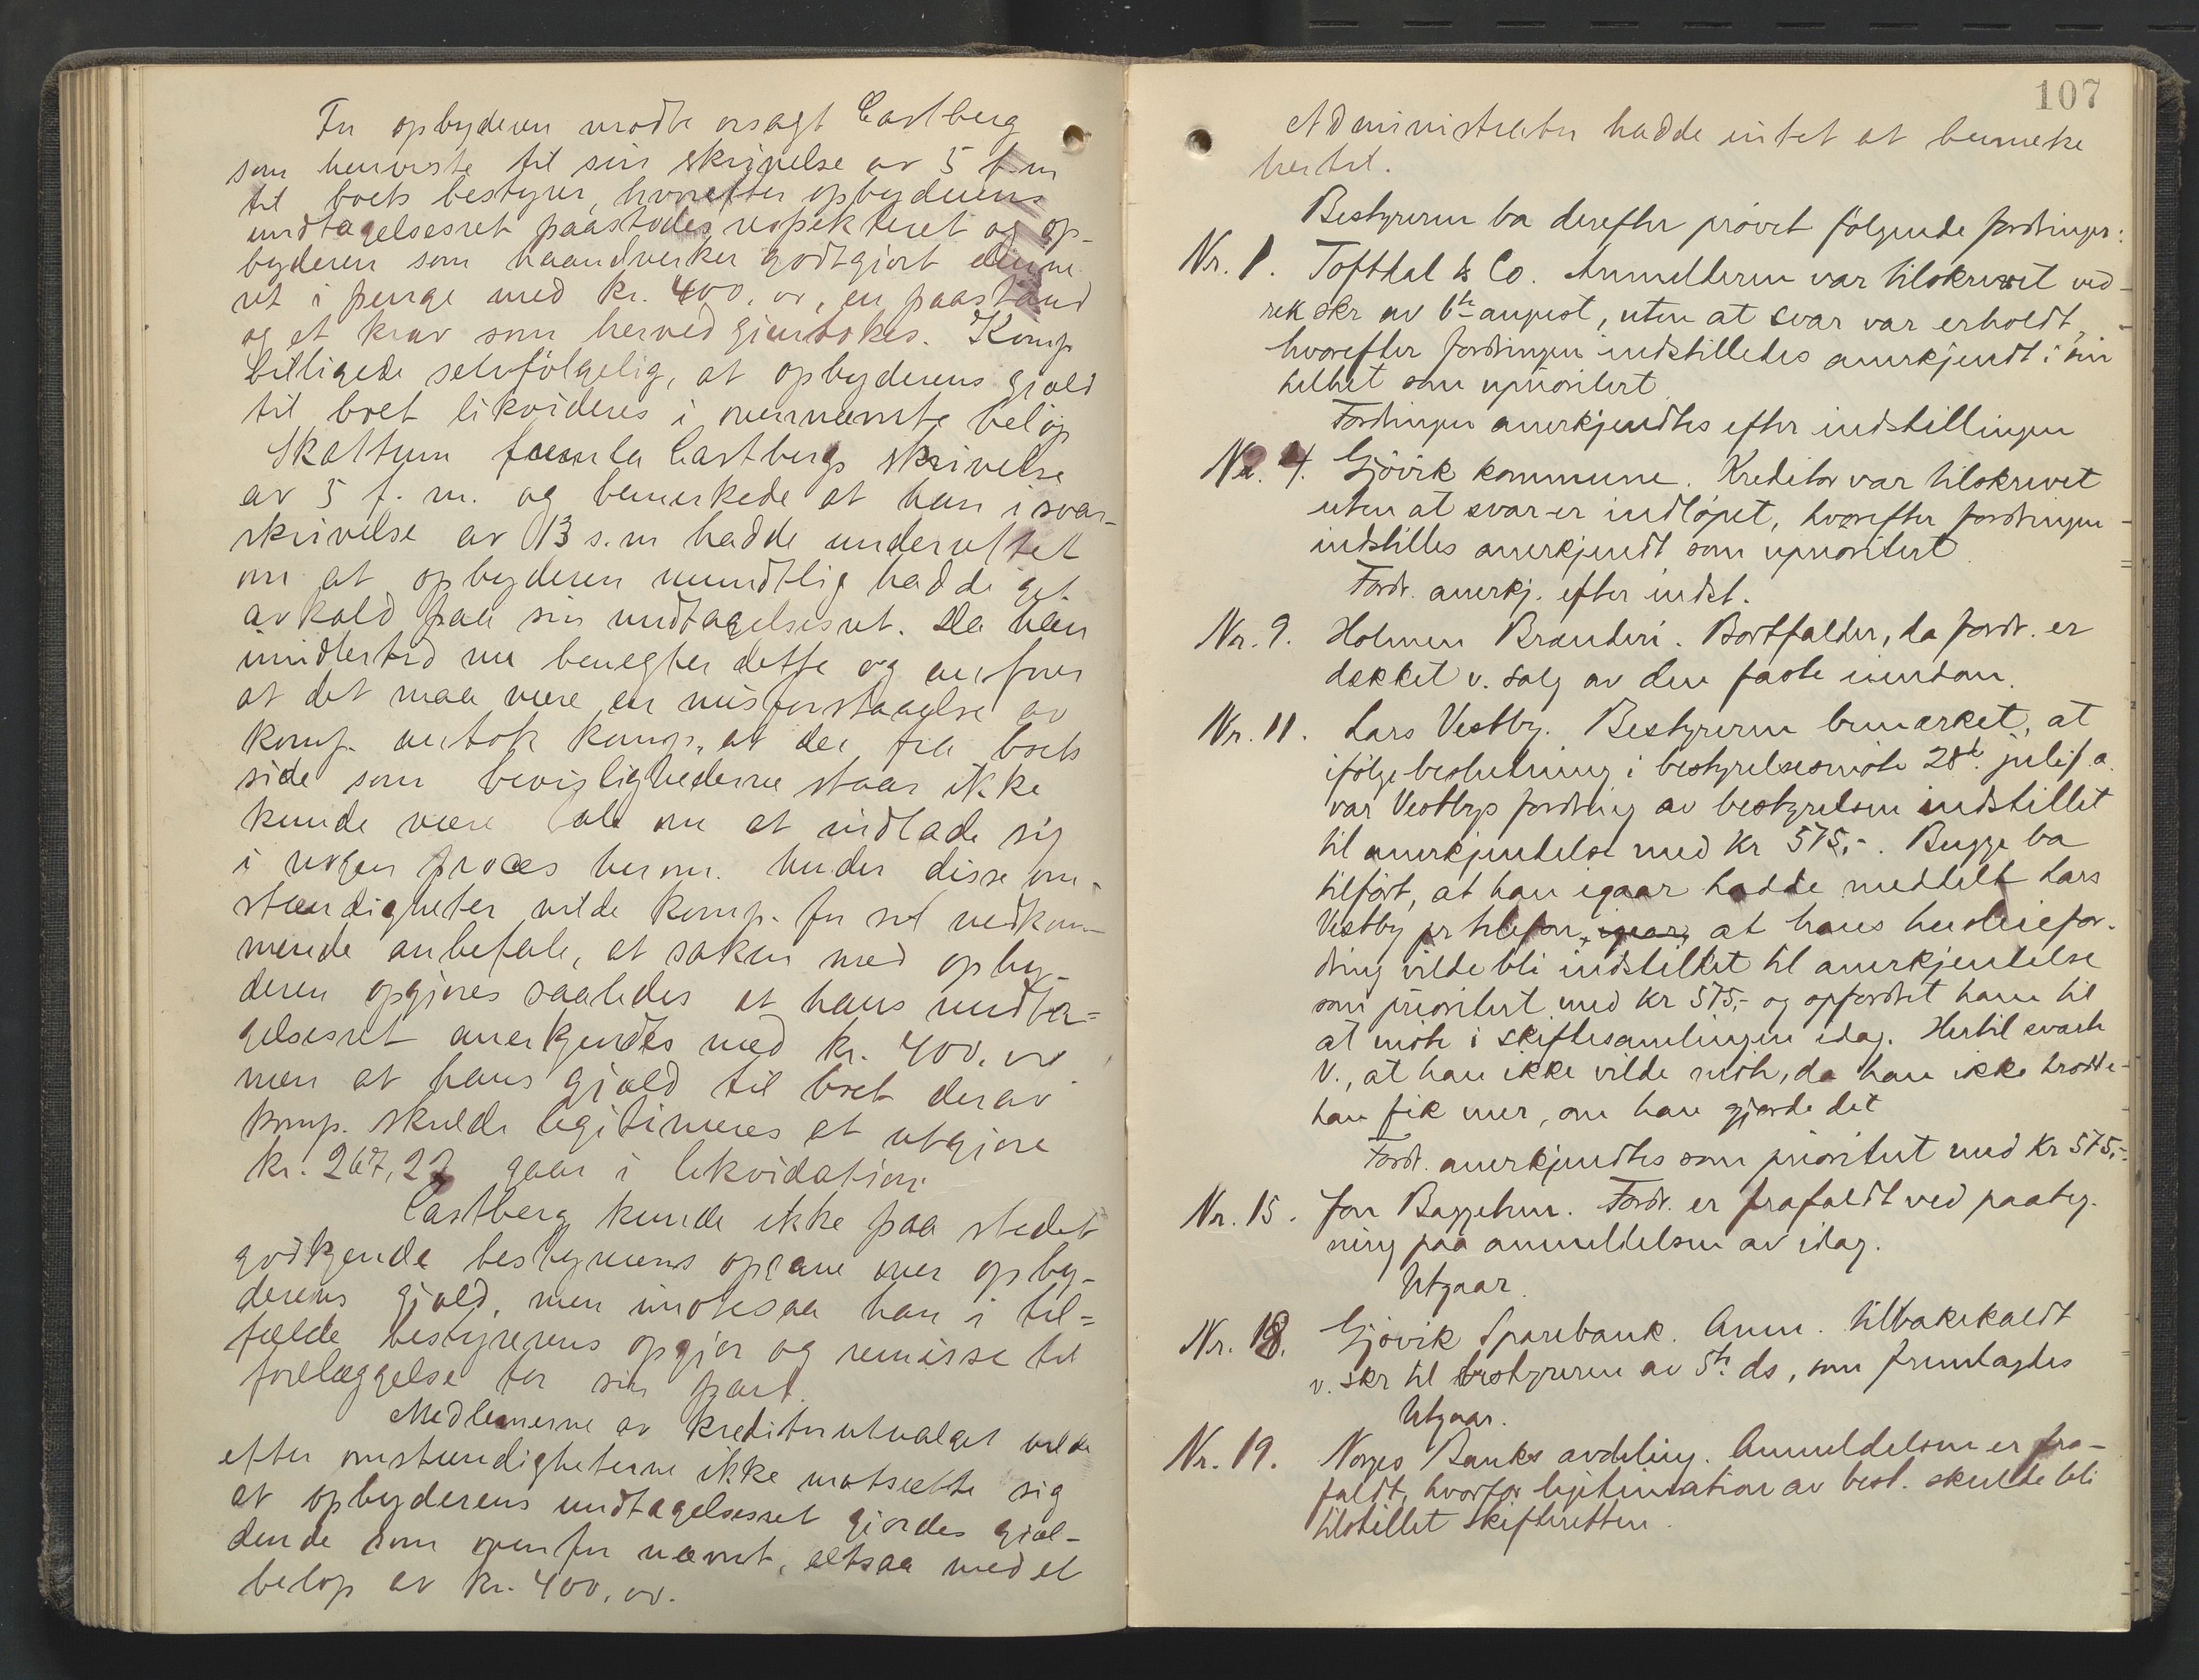 For opbyderen møtte o.r.sagf. Castberg
som henviste til sin skrivelse av 5 f.m
til boets bestyrer, hvorefter opbyderens
undtagelsesret paastodes respekteret og op-
byderen som haandverker godtgjort denne
ret i penge med kr. 400,00, en paastand
og et krav som herved gjentokes. Komp
billigede selvfølgelig, at opbyderens gjæld
til boet likvideres i ovennævnte beløp
Skattum Castbergs skrivelse
av 5 f. m. og bemerkede at han i svar-
skrivelse av 13 s.m hadde underrettet
om at opbyderen mundtlig hadde git
avkald paa sin undtagelsesret. Da han
imidlertid nu benegter dette og anfører
at det maa være en misforstaaelse av
komp. antok komp., at der fra boets
side som bevisligheterne staar ikke
kunde være tale om at indlade sig
i nogen proces herom. Under disse om-
stændigheter vilde komp. for sit vedkom-
mende anbefale, at saken med opby-
deren opgjøres saaledes at hans undta=
gelsesret anerkjendtes med kr. 400,00
men at hans gjæld til boet derav
komp. skulde legitimeres at utgjøre
kr. 267,22 gaar i likvidation.
Castberg kunde ikke paa stedet
godkjende bestyrerens opgave over opby-
derens gjæld, men imøtesaa han i til=
fælde bestyrerens opgjør og remisse til
forelæggelse for sin part.
Medlemerne av kreditorutvalget vilde
efter omstændigheterne ikke motsætte sig
at opbyderens undtagelsesret gjordes gjæl-
dende som ovenfor nævnt, altsaa med et
beløp av kr. 400,00.
107
Administrator hadde intet at bemerke
hertil.
Bestyreren ba derefter prøvet følgende fordringer:
Nr. 1. Tofthal & Co. Anmelderen var tilskrevet ved
rek skr av 6te august, uten at svar var erholdt,
hvorefter fordringen indstilledes anerkjendt i sin
helhet som uprioritert
Fordringen anerkjendtes efter indstillingen
Nr. 4. Gjøvik kommune. Kreditor var tilskrevet
uten at svar er indløpet, hvorefter fordringen
indstilles anerkjendt som uprioritert.
Fordr. anerkj. efter indst.
Nr. 9. Holmen Brænderi. Bortfalder, da fordr. er
dækket v. salg av den faste eiendom.
Nr. 11. Lars Vestby. Bestyreren bemerket, at
ifølge beslutning i bestyrelsesmøte 28de juli f.a.
var Vestbys fordring av bestyrelsen indstillet
til anerkjendelse med kr 575,-. Bugge ba
tilført, at han igaar hadde meddelt Lars
Vestby pr telefon, igaar, at hans husleiefor-
dring vilde bli indstillet til anerkjendelse
som prioritert med kr 575,- og opfordret ham til
at møte i skiftesamlingen idag. Hertil svarte
V., at han ikke vilde møte, da han ikke trodde
han fik mer, om han gjorde det
Fordr. anerkjendtes som prioritert med kr 575,-
Nr. 15. Jon Baggehun. Fordr. er frafaldt ved paateg-
ning paa anmeldelsen av idag.
Utgaar.
Nr. 18. Gjøvik Sparebank. Anm. tilbakekaldt
v. skr til bestyreren av 5te ds, som fremlagdes
Utgaar.
Nr. 19. Norges Banks avdeling. Anmeldelsen er fra-
faldt, hvorfor legitimation av best. skulde bli
tilstillet skifteretten.